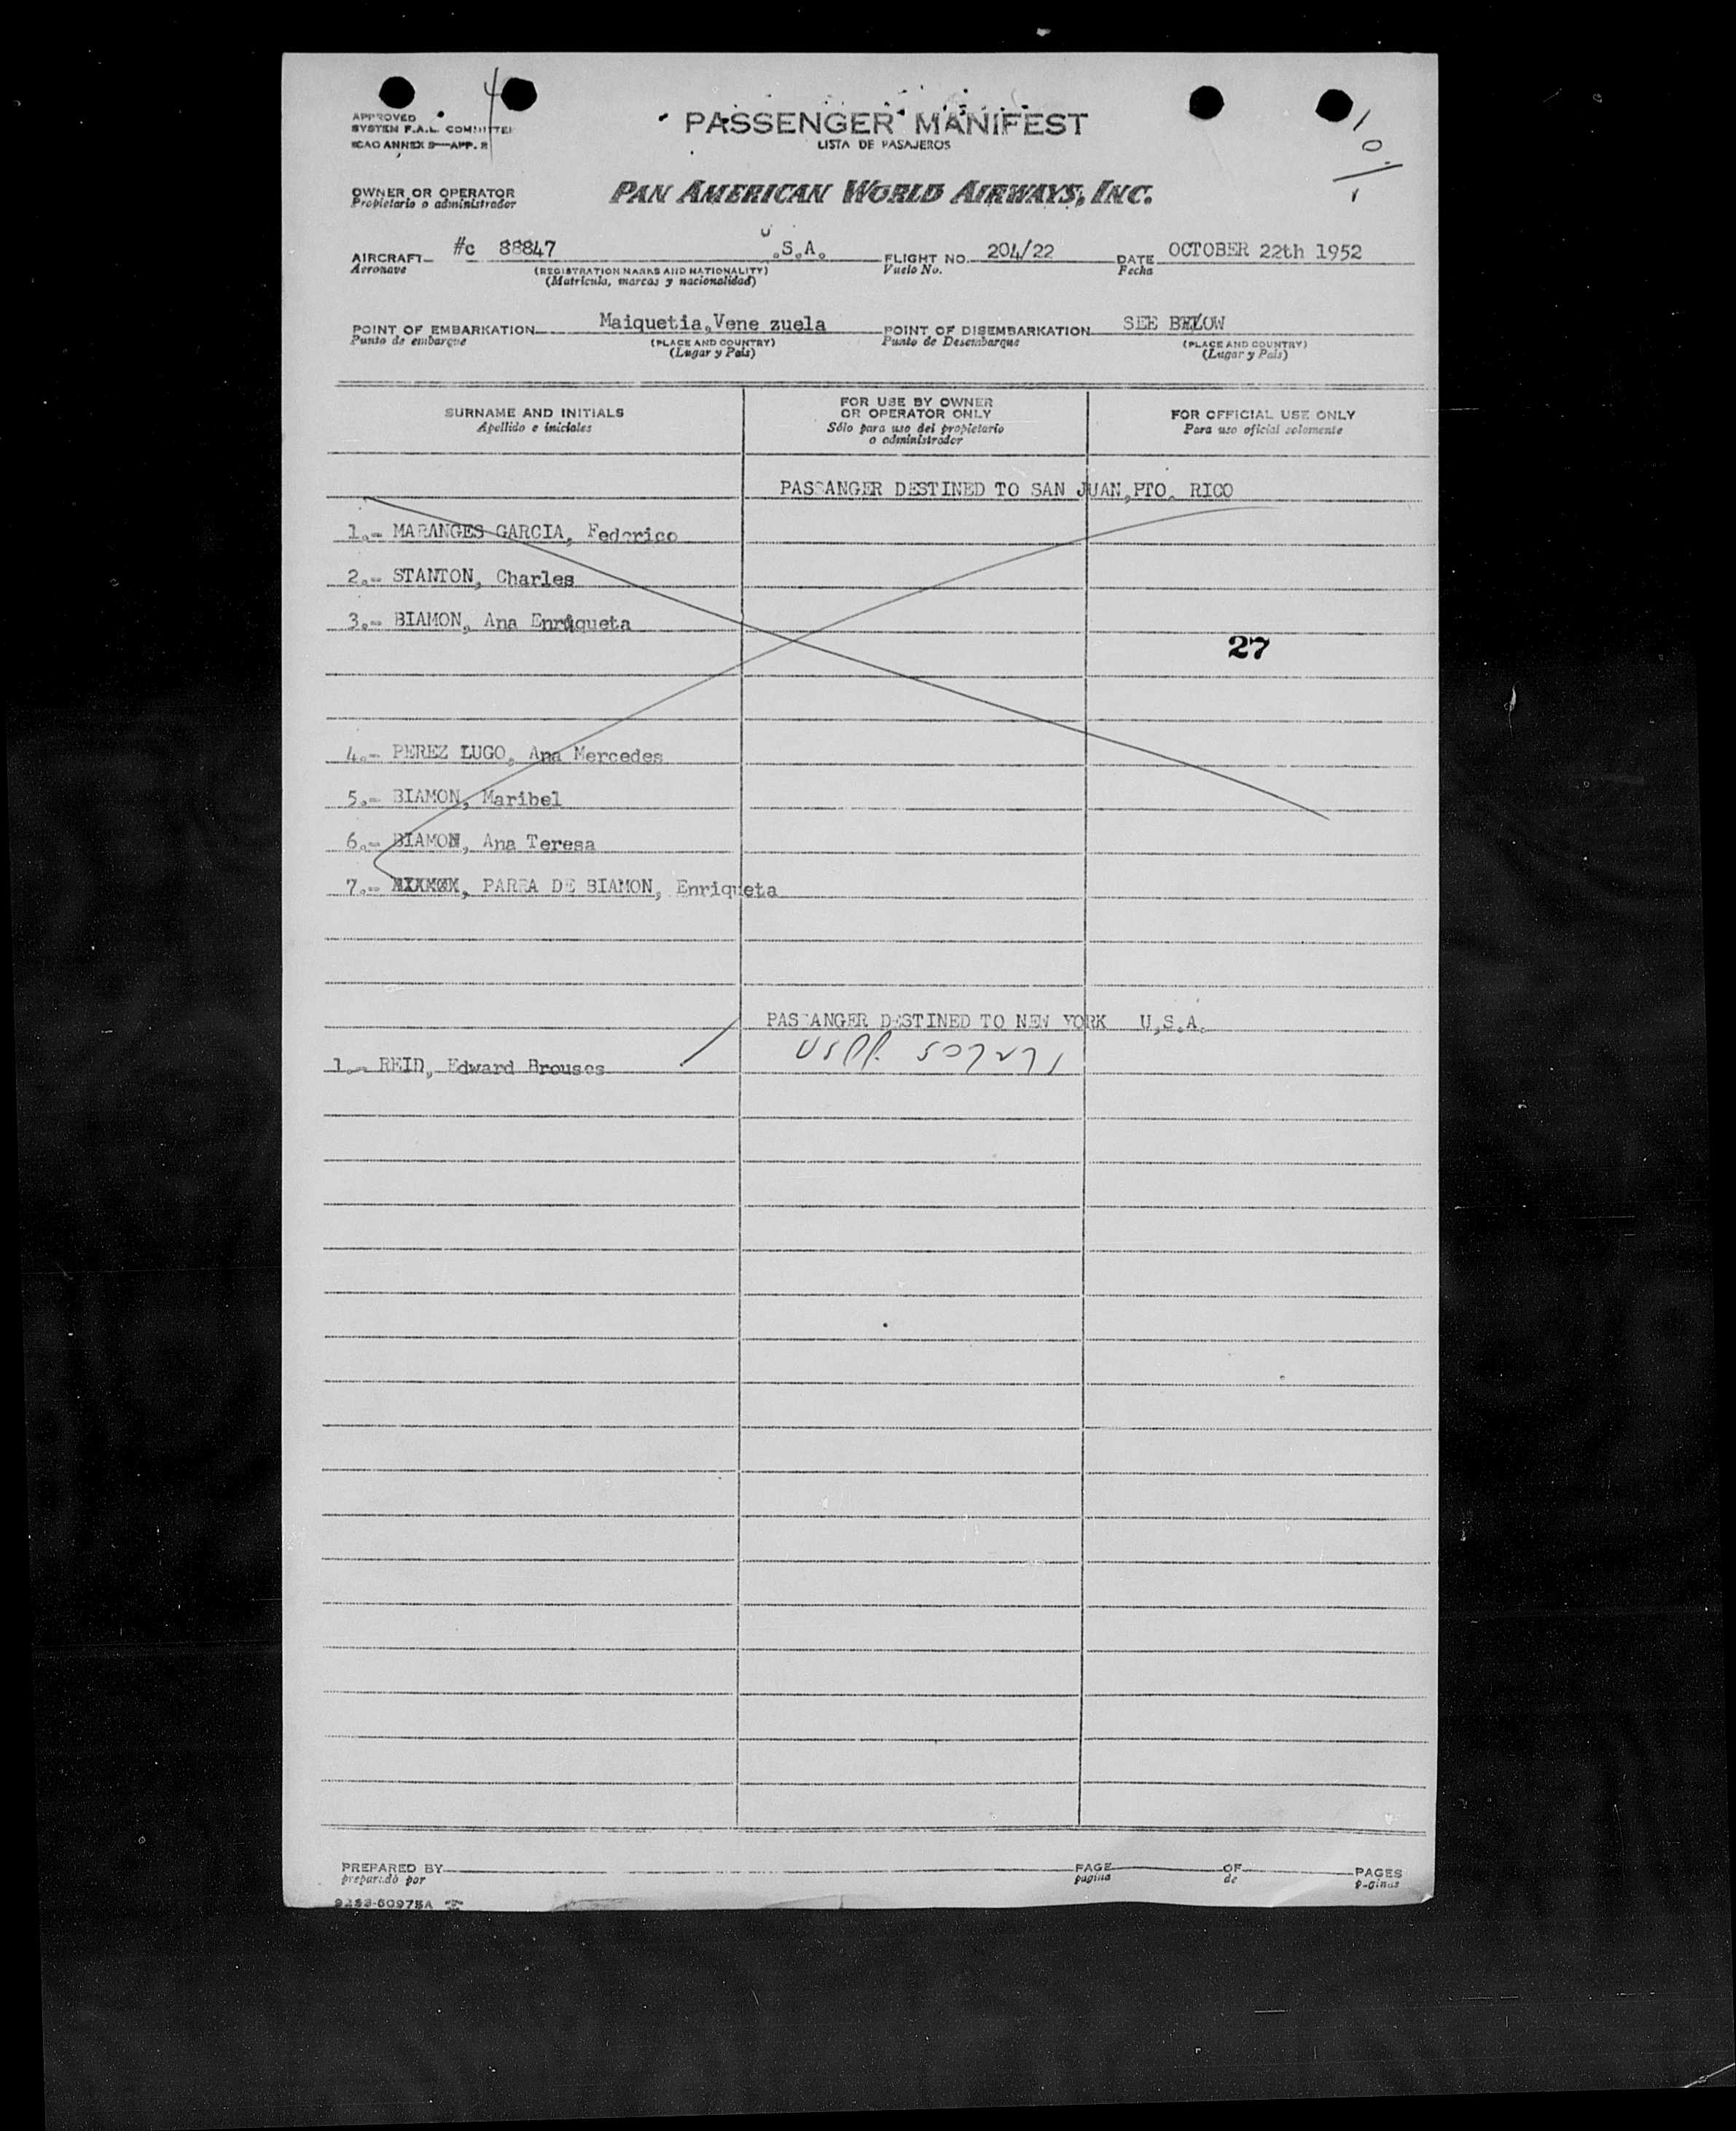 4
APPROVED
SYSTEM F.A.L. COMMITTEE
ICAO ANNEX 9—APP. 
PASSENGER MANIFEST
LISTA DE PASAJEROS
10
1
OWNER OR OPERATOR
Propietario o administrador
PAN AMERICAN WORLD AIRWAYS, INC.
AIRCRAFT #c 88847 U.S.A. FLIGHT NO. 204/22 DATE OCTOBER 22th 1952
Aeronave (REGISTRATION MARKS AND NATIONALITY) Vuelo No. Fecha
(Matrícula, marcas y nacionalidad)
POINT OF EMBARKATION Maiquetia,Vene zuela POINT OF DISEMBARKATION SEE BELOW
Punto de embarque (PLACE AND COUNTRY) Punto de Desembarque (PLACE AND COUNTRY)
(Lugar y País) (Lugar y País)
SURNAME AND INITIALS
Apellido e iniciales
FOR USE BY OWNER
OR OPERATOR ONLY
Sólo para uso del propietario
o administrador
FOR OFFICIAL USE ONLY
Para uso oficial solamente
PASSANGER DESTINED TO SAN JUAN,PTO. RICO
1.- MARANGES GARCIA, Federico
2.- STANTON, Charles
3.- BIAMON, Ana Enriqueta
27
4.- PEREZ LUGO, Ana Mercedes
5.- BIAMON, Maribel
6.- BIAMON, Ana Teresa
7.- PARRA DE BIAMON, Enriqueta
PASSANGER DESTINED TO NEW YORK U.S.A.
1.- REID, Edward Brouses
PREPARED BY PAGE OF PAGES
preparado por página de páginas